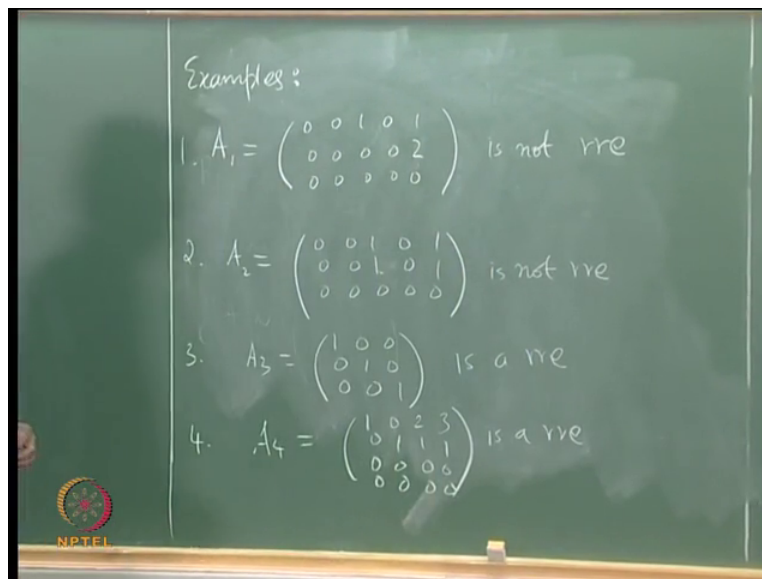 Examples:
1. A₁ = ( 0 0 1 0 1
0 0 0 0 2
0 0 0 0 0 ) is not rre
2. A₂ = ( 0 0 1 0 1
0 0 1 0 1
0 0 0 0 0 ) is not rre
3. A₃ = ( 1 0 0
0 1 0
0 0 1 ) is a rre
4. A₄ = ( 1 0 2 3
0 1 1 1
0 0 0 0
0 0 0 0 ) is a rre
NPTEL